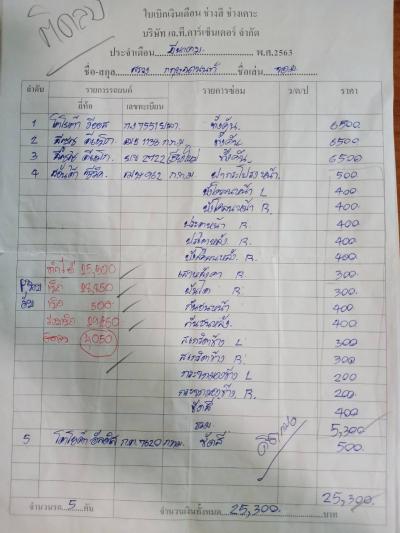 ติดลบ
ใบเบิกเงินเดือน ช่างสี ช่างเคาะ
บริษัท เจ.ที.คาร์เซ็นเตอร์ จำกัด
ประจำเดือน มีนาคม พ.ศ.2563
ชื่อ-สกุล ชื่อเล่น
ลำดับ รายการรถยนต์ รายการซ่อม ว/ด/ป ราคา
ยี่ห้อ เลขทะเบียน
1 โตโยต้า วีออส 7551 ทั้งคัน 6500
2 อีซูซุ ดีแม็ก 1136 กทม ทั้งคัน 6500
3 อีซูซุ ดีแม็ก 2722 เชียงใหม่ ทั้งคัน 6500
4 ฮอนด้า ซีวิค 962 กทม ฝากระโปรงหน้า 500
บังโคลนหน้า L 400
บังโคลนหน้า R. 400
ประตูหน้า R 400
ประตูหลัง R. 400
บังโคลนหลัง R. 400
ทำได้ 25,300 เสาหลังคา R 300
เบิก บันได R 300
500 กันชนหน้า 400
กันชนหลัง 400
4050 สเกิร์ตข้าง L 300
สเกิร์ตข้าง R. 300
กระจกมองข้าง L 200
กระจกมองข้าง R. 200
ขัดสี 400
รวม 5,300
5 โตโยต้า อัลติส 7620 กทม ขัดสี 500
25,300.
จำนวนรถ 5 คัน จำนวนเงินทั้งหมด 25,300. บาท